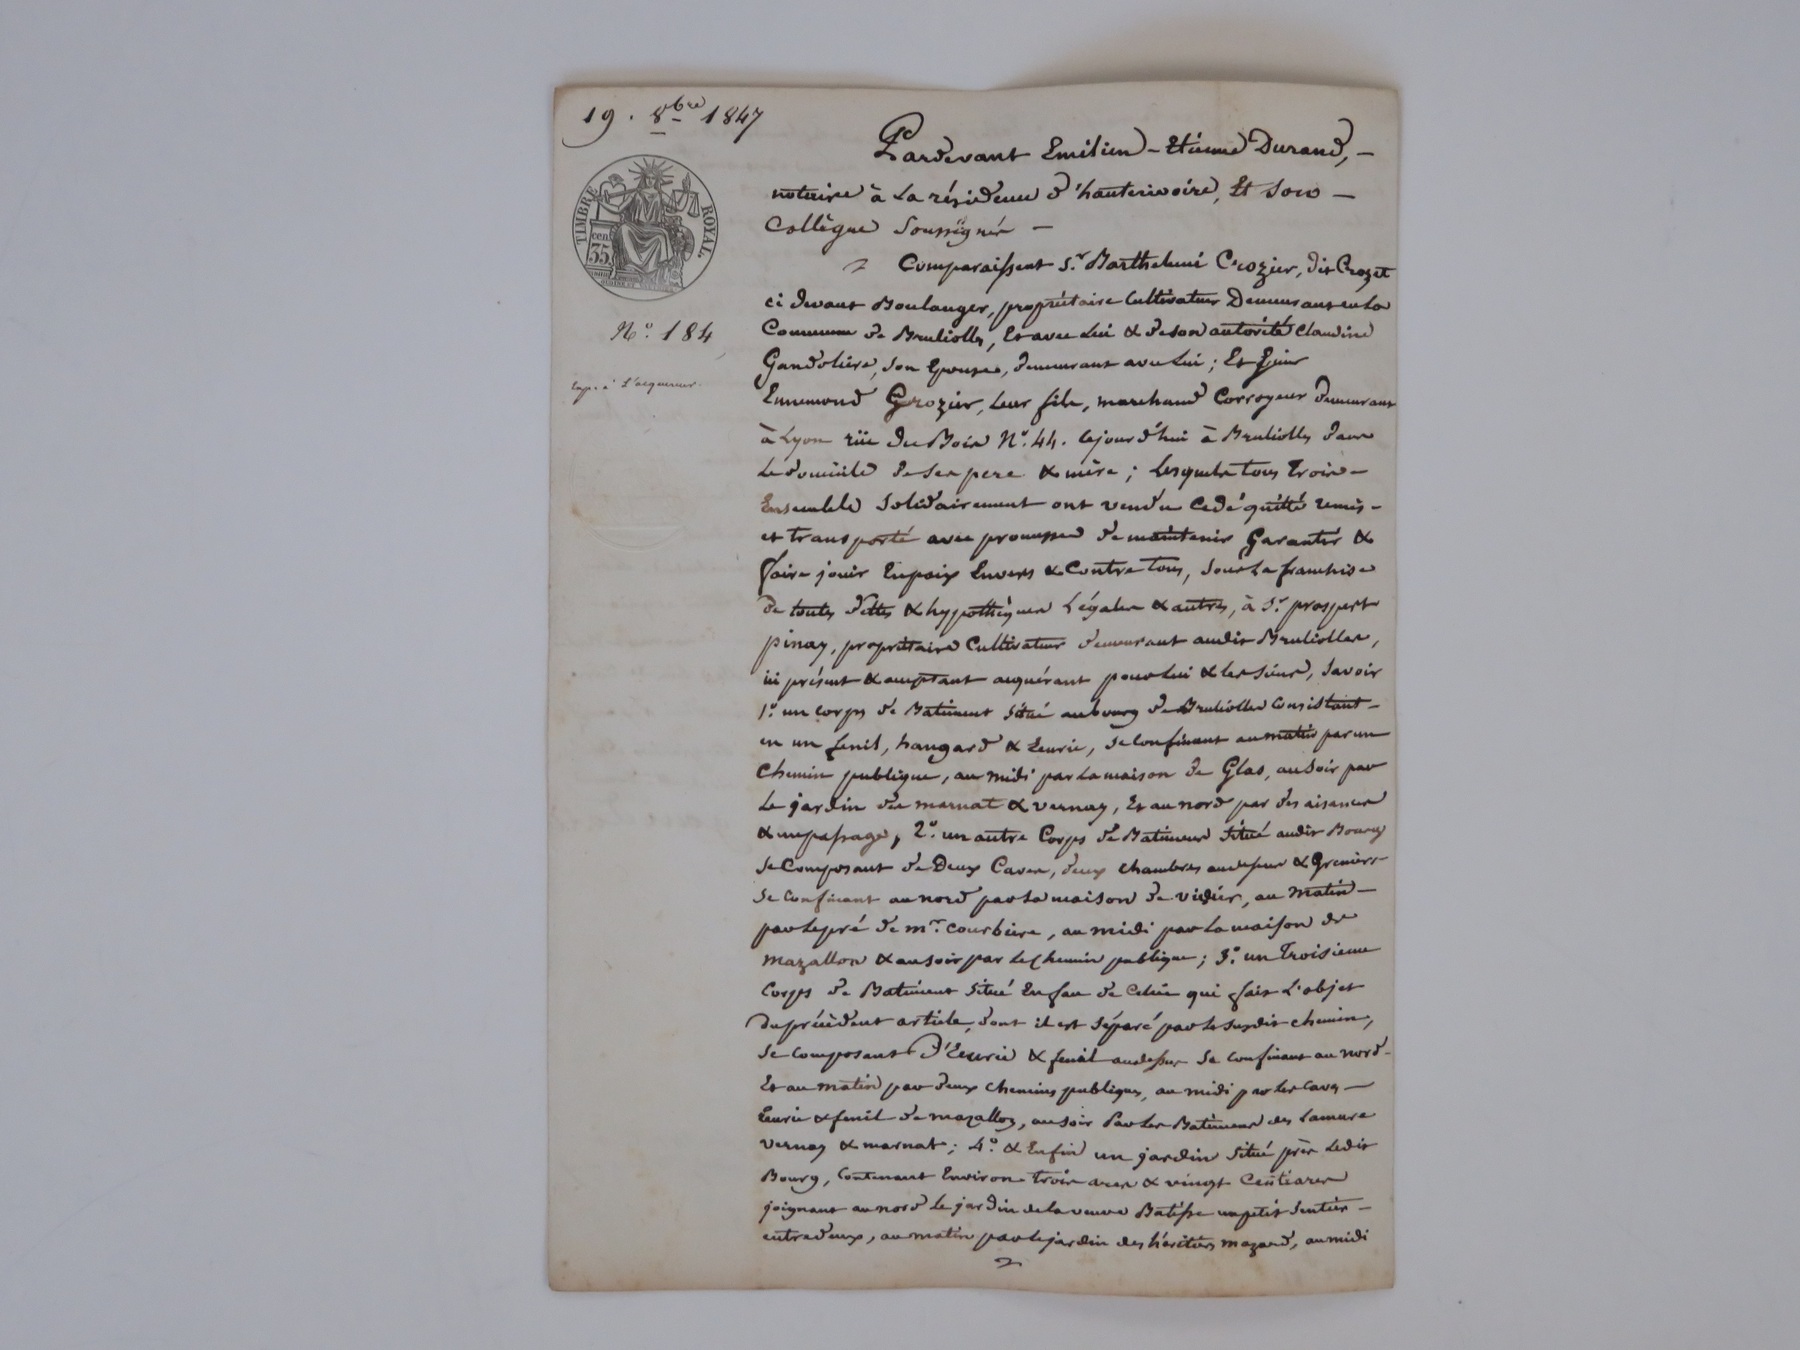 19. 8bre 1847
TIMBRE ROYAL
cen. 35.
No. 184
Exp. à l'acquereur.
Pardevant Emilien - Etienne Durand, -
notaire à la résidence d'hauterivoire, Et son -
Collègue Soussignés -
Comparaissent Sr. Barthelemi Crozier, dit Crozet
ci devant Boulanger, propriétaire Cultivateur Demeurant en la
Commune de Brulioles, Et avec lui & de son autorité Claudine
Gandolière, son Epouse, demeurant avec lui; Et
Ennemond Grozier, leur fils, marchand Corroyeur demeurant
à Lyon rüe du Bois No. 44. cejourd'hui à Brulioles dans
le domicile de ses pere & mère; lesquels tous trois -
Ensemble Solidairement ont vendu cedé quitté remis -
et transporté avec promesse de maintenir Garantir &
faire jouir Enpaix Envers & Contre tous, sous la franchise
de toutes dettes & hypothèques Légales & autres, à Sr. prospert
pinay, propriétaire Cultivateur demeurant audit Bruliolles,
ici présent & acceptant acquérant pour lui & les siens, Savoir
1o. un corps de Batiment situé au bourg de Bruliolles Consistant -
en un fenil, hangard & Ecurie, se confinant au matin par un
Chemin publique, au midi par la maison de Glas, au soir par
le jardin de marnat & vernay, Et au nord par des aisances
& un passage, 2o. un autre Corps de Batiment situé audit Bourg
se Composant de Deux Caves, deux chambres au dessus & Greniers -
se confinant au nord par la maison de vidier, au Matin -
par le pré de mr. courbière, au midi par la maison de
mazallon & au soir par le chemin publique; 3o. un Troisieme
Corps de Batiment situé En face de celui qui fait l'objet
du précèdent article, dont il est séparé par le susdit chemin,
se composant d'Ecurie & fenil audessus se confinant au nord -
Et au matin par deux chemins publiques, au midi par les Caves -
Ecurie & fenil de mazallon, au soir Par les Batiments des Lamure
vernay & marnat; 4o. & Enfin un jardin situé près ledit
Bourg, Contenant Environ trois ares & vingt Centiares
joignant au nord le jardin de la veuve Batisse un petit Sentier -
entredeux, au matin par le jardin des héritiers mazard, au midi